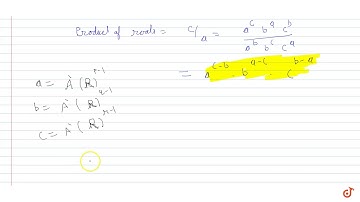 Product of roots = c/a = a^c b^a c^b / a^b b^c c^a
= a^{c-b} · b^{a-c} · c^{b-a}
a = A (R)^{p-1}
b = A (R)^{q-1}
c = A (R)^{r-1}